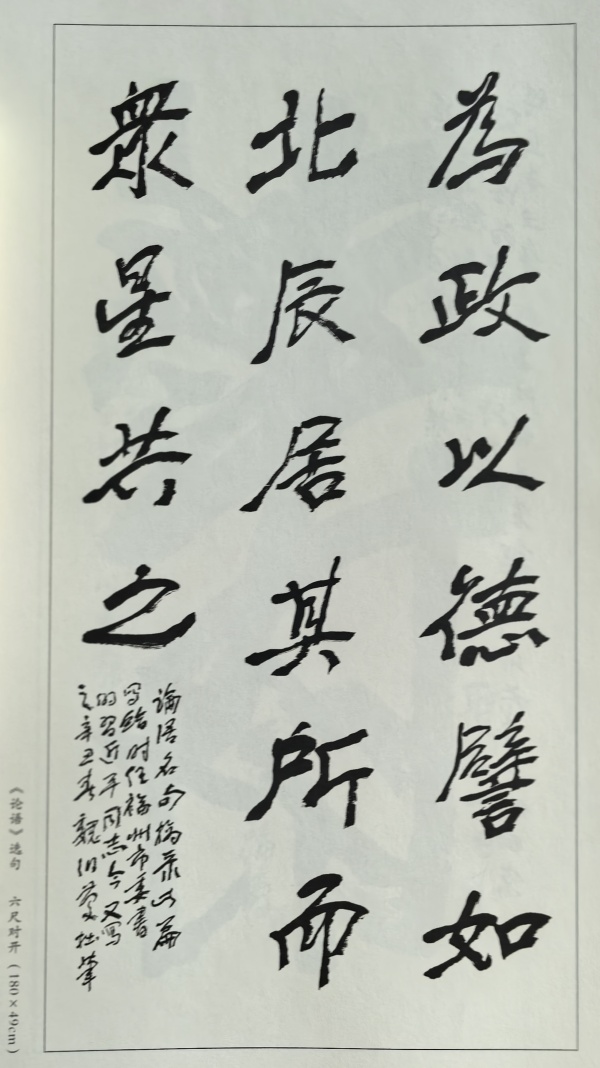 為政以德譬如
北辰居其所而
衆星共之
論語名句摘录此篇
写给时任福州市委書
的習近平同志今又寫
之辛丑春魏伯夔拙筆
《论语》选句 六尺对开（180×49cm）